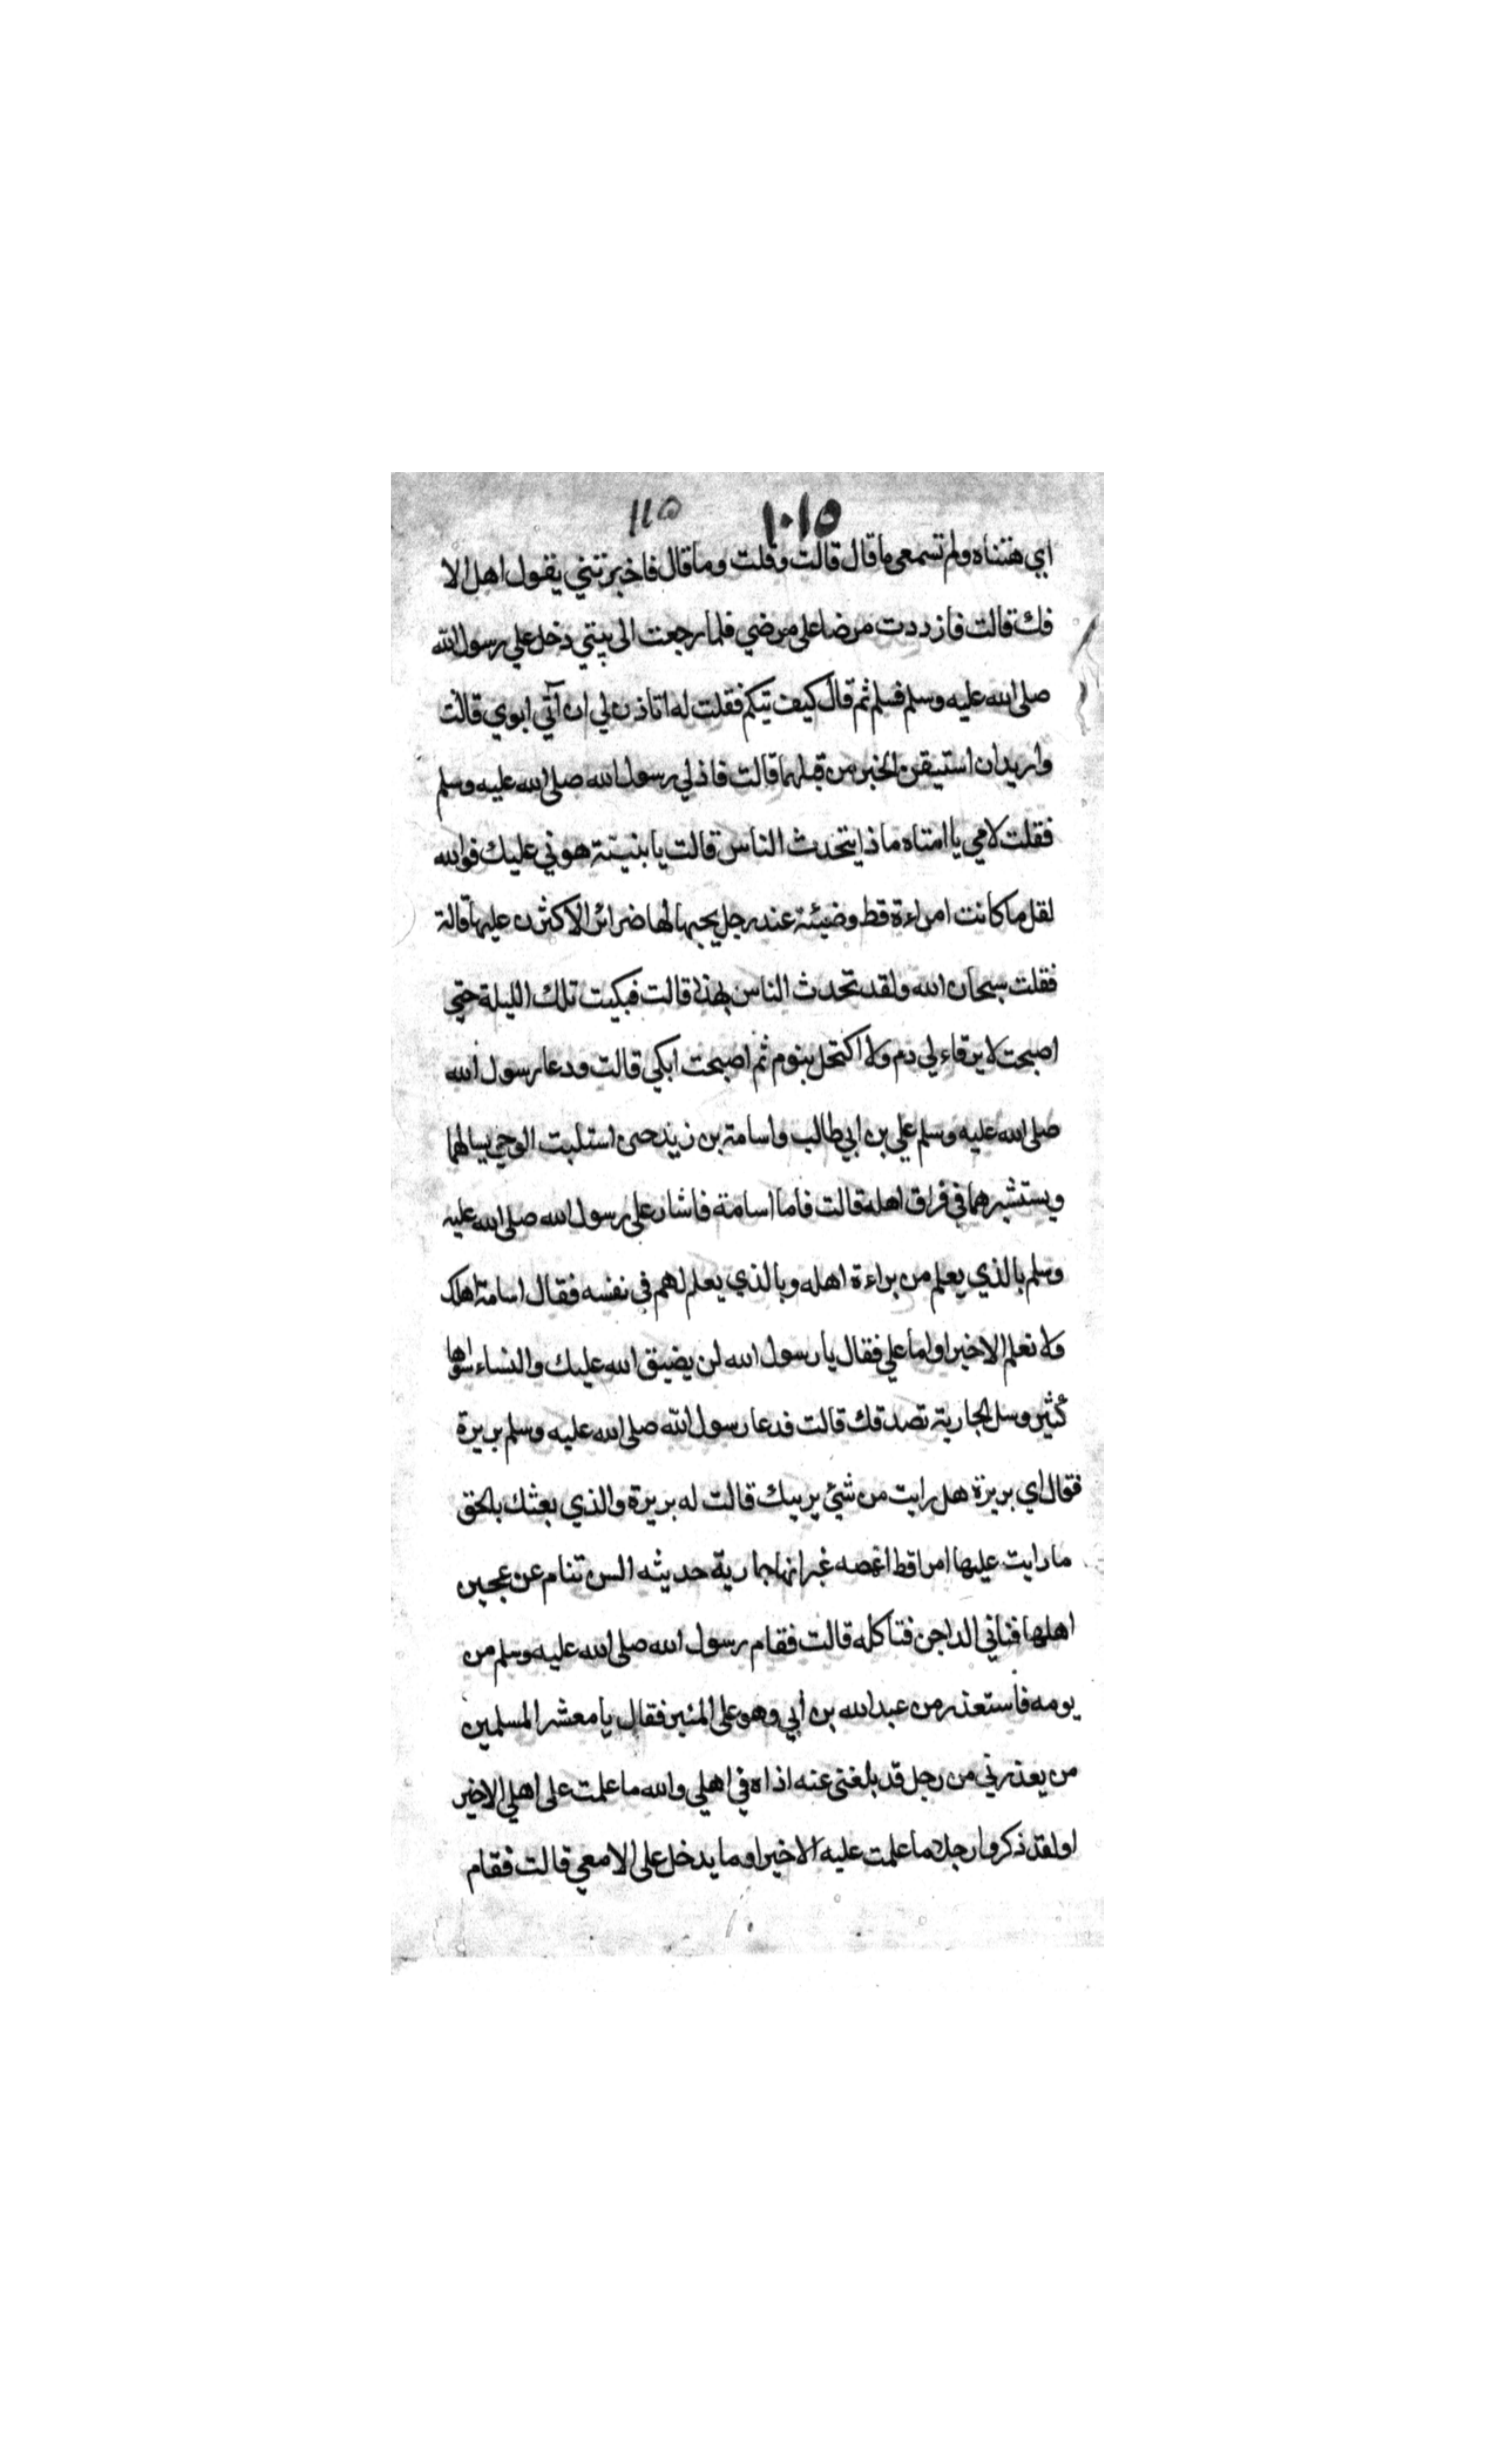 ١٠١٥ ١١٥
اي هنتناه ولم تسمعي ما قال قالت وقلت وما قال فاخبرتني يقول اهل الا
فك قالت فازددت مرضا على مرضي فلما رجعت الى بيتي دخل علي رسول الله
صلى الله عليه وسلم فسلم ثم قال كيف تيكم فقلت له اتاذن لي ان آتي ابوي قالت
واريد ان استيقن الخبر من قبلهما قالت فاذ لي رسول الله صلى الله عليه وسلم
فقلت لامي يا امتاه ماذا يتحدث الناس قالت يا بنيتة هوني عليك فوالله
لقل ما كانت امراءة قط وضيئة عند رجل يحبها لها ضرائر الا كثرن عليها قالة
فقلت سبحان الله ولقد تحدث الناس بهذا قالت فبكيت تلك الليلة حتي
اصبحت لا يرقاء لي دم ولا اكتحل بنوم ثم اصبحت ابكي قالت ودعا رسول الله
صلى الله عليه وسلم علي بن ابي طالب واسامة بن زيد حىں استلبت الوحي يسالهما
ويستشيرهما في فراق اهله قالت فاما اسامة فاشار على رسول الله صلى الله عليه
وسلم بالذي يعلم من براءة اهله وبالذي يعلم لهم في نفسه فقال اسامة اهلك
ولا نعلم الا خيرا واما علي فقال يا رسول الله لن يضيق الله عليك والنساء سواها
كثير وسل الجارية تصدقك قالت فدعا رسول الله صلى الله عليه وسلم بريرة
فقال اي بريرة هل رايت من شئ يريبك قالت له بريرة والذي بعثك بالحق
ما رايت عليها امرا قط اغمصه غير انها جارية حديثه السن تنام عن عجين
اهلها فتاتي الداجن فتاكله قالت فقام رسول الله صلى الله عليه وسلم من
يومه فاستعذر من عبد الله بن أبي وهو على المنبر فقال يا معشر المسلمين
من يعذرني من رجل قد بلغني عنه اذاه في اهلي والله ما علمت على اهلي الا خير
ا ولقد ذكروا رجلا ما علمت عليه الا خيرا وما يدخل على الا معي قالت فقام